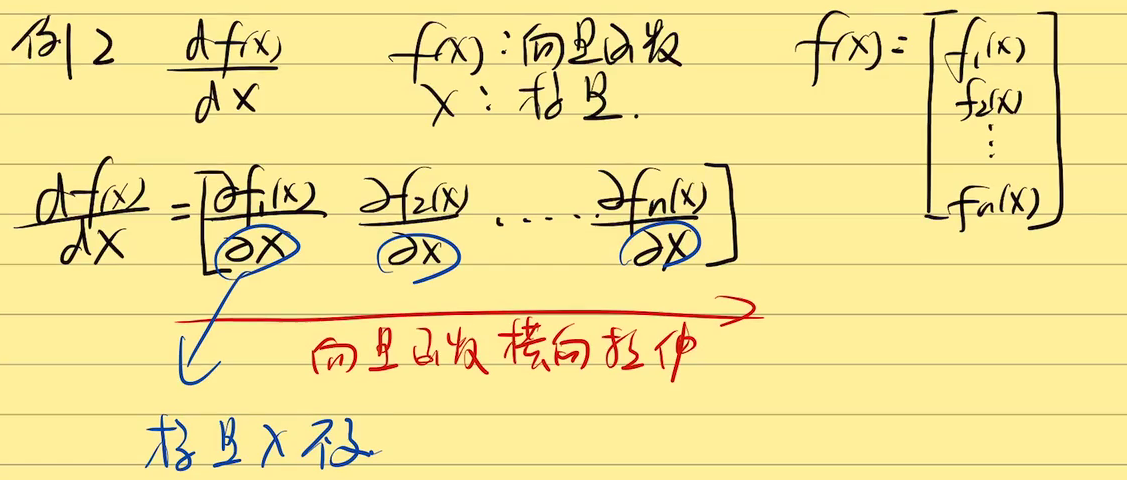 例2 df(x)/dx f(x):向量函数 f(x)=[f₁(x)
x:标量. f₂(x)
⋮
fn(x)]
df(x)/dx=[∂f₁(x)/∂x ∂f₂(x)/∂x ······ ∂fn(x)/∂x]
向量函数横向拉伸
标量x不变.